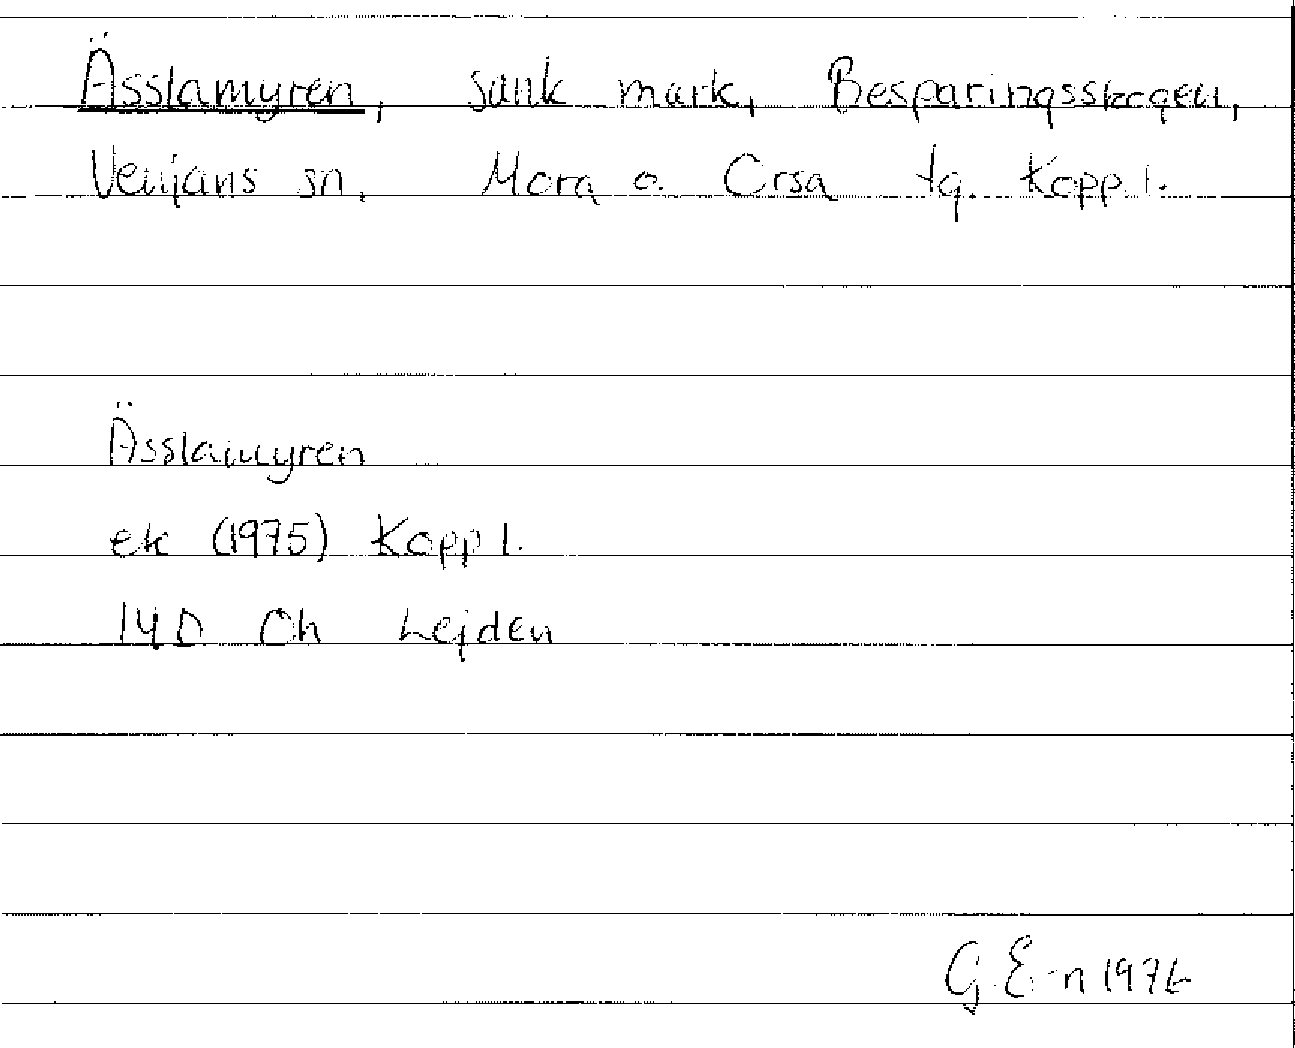 Ässlamyren, sank mark, Besparingsskogen,
Venjans sn, Mora o. Orsa tg. Kopp. l.
Ässlamyren
ek (1975) Kopp l.
14D Öh Lejden
G.E-n 1976